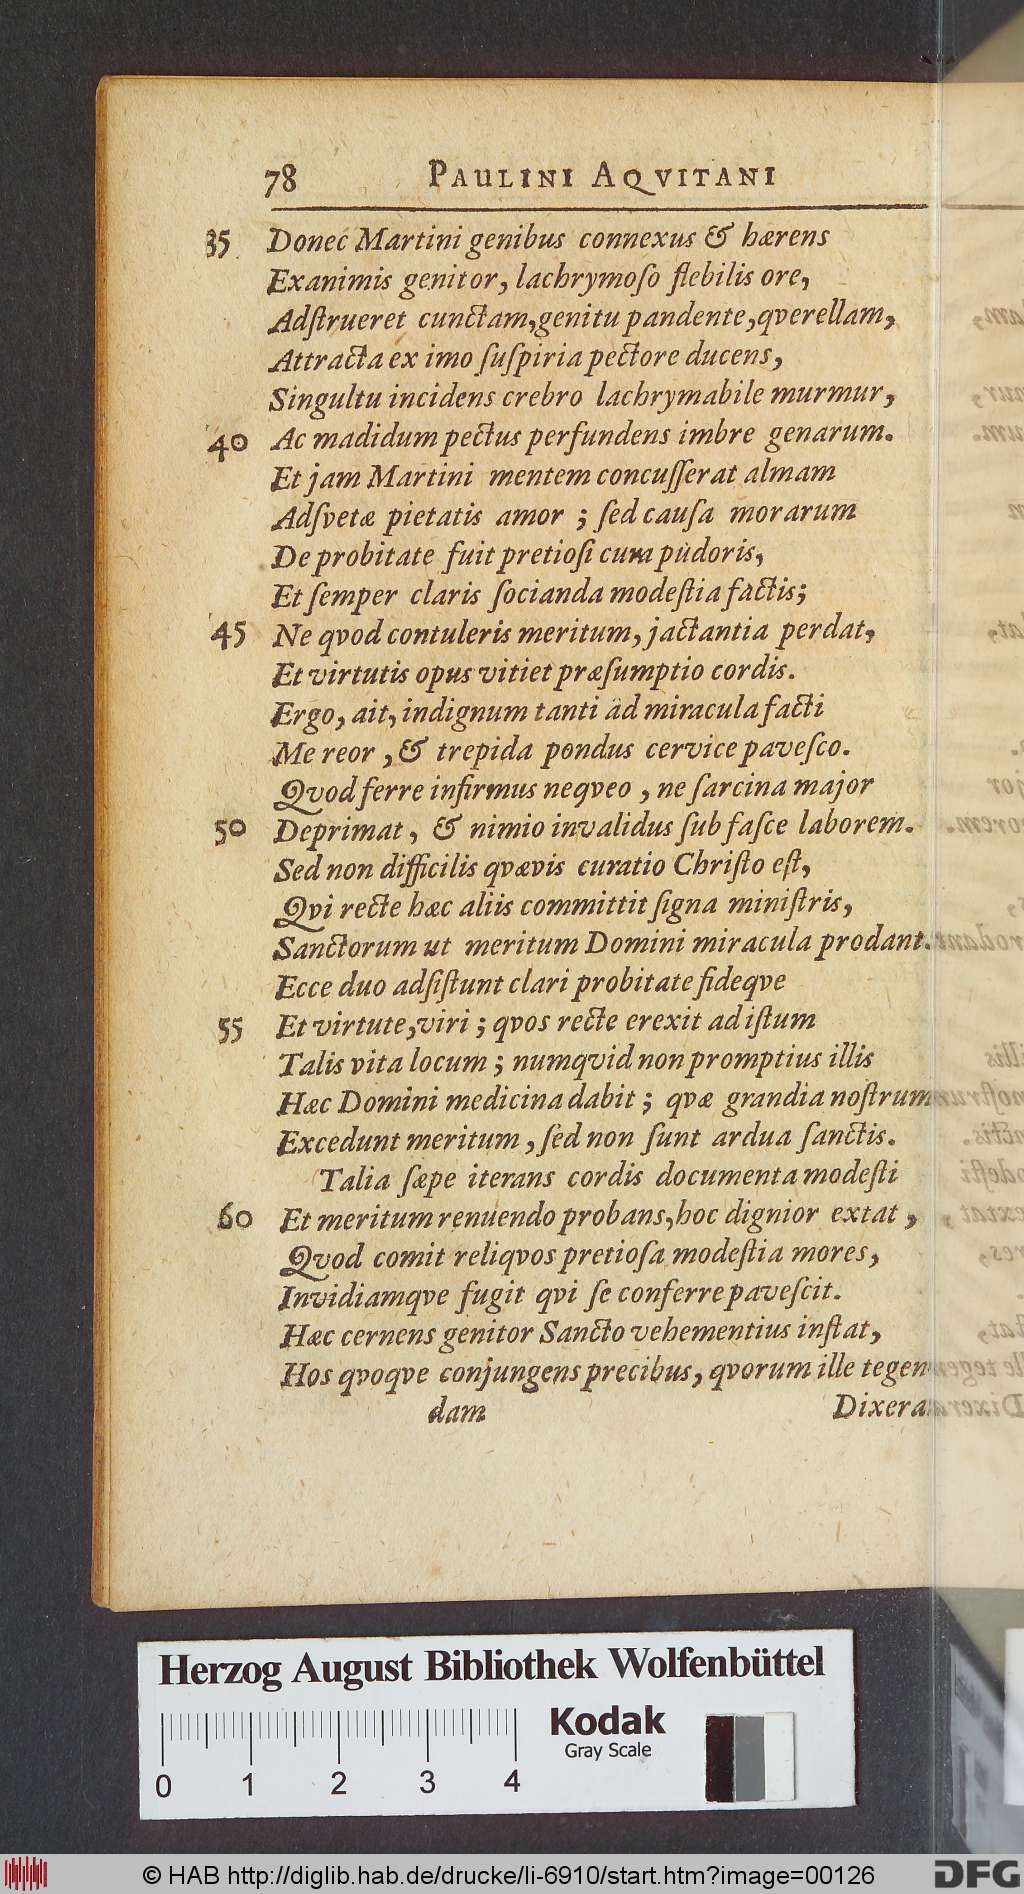 78 PAULINI AQVITANI
35 Donec Martini genibus connexus & hærens
Exanimis genitor, lachrymoſo flebilis ore,
Adſtrueret cunctam, genitu pandente, qverellam,
Attracta ex imo ſuſpiria pectore ducens,
Singultu incidens crebro lachrymabile murmur,
40 Ac madidum pectus perfundens imbre genarum.
Et jam Martini mentem concuſſerat almam
Adſvetæ pietatis amor ; ſed cauſa morarum
De probitate fuit pretioſi cura pudoris,
Et ſemper claris ſocianda modeſtia factis;
45 Ne qvod contuleris meritum, jactantia perdat,
Et virtutis opus vitiet præſumptio cordis.
Ergo, ait, indignum tanti ad miracula facti
Me reor , & trepida pondus cervice paveſco.
Qvod ferre infirmus neqveo , ne ſarcina major
50 Deprimat, & nimio invalidus ſub faſce laborem.
Sed non difficilis qvævis curatio Chriſto eſt,
Qvi recte hæc aliis committit ſigna miniſtris,
Sanctorum ut meritum Domini miracula prodant.
Ecce duo adſiſtunt clari probitate fideqve
55 Et virtute, viri ; qvos recte erexit ad iſtum
Talis vita locum ; numqvid non promptius illis
Hæc Domini medicina dabit ; qvæ grandia noſtrum
Excedunt meritum, ſed non ſunt ardua ſanctis.
Talia ſæpe iterans cordis documenta modeſti
60 Et meritum renuendo probans, hoc dignior extat ,
Qvod comit reliqvos pretioſa modeſtia mores,
Invidiamqve fugit qvi ſe conferre paveſcit.
Hæc cernens genitor Sancto vehementius inſtat,
Hos qvoqve conjungens precibus, qvorum ille tegen
dam Dixera
Herzog August Bibliothek Wolfenbüttel
Kodak
Gray Scale
0 1 2 3 4
© HAB http://diglib.hab.de/drucke/li-6910/start.htm?image=00126
DFG